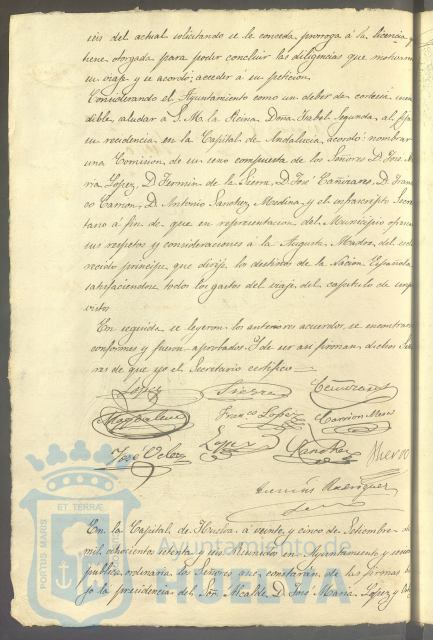 seis del actual solicitando se le conceda prorroga á la licencia q
tiene otorgada para poder concluir las diligencias que motivaron
su viaje y se acordó; acceder á su peticion.
Considerando el Ayuntamiento como un deber de cortesía inelu
dible, saludar á S. M. la Reina Doña Isabel Segunda, al fijar
su residencia en la Capital de Andalucía, acordó: nombrar
una Comision de su seno compuesta de los Señores D. José Ma
ria Lopez, D. Fermin de la Sierra, D. José Cañizares, D. Francis
co Camon, D. Antonio Sanchez Medina y el infrascripto Secre
tario á fin de que en representacion del Municipio ofrezca
sus respetos y consideraciones á la Augusta Madre del escla
recido principe que dirije los destinos de la Nacion Española
satisfaciendose todos los gastos del viaje del capitulo de impre
vistos
En seguida se leyeron los anteriores acuerdos, se encontraron
conformes y fueron aprobados. Y de ser asi firman dichos Seño
res de que yo el Secretario certifico =
Lopez Sierra Cañizares
Franco Lopez
José Velez Lopez Sanchez
Rodriguez
ET TERRAE
PORTUS MARIS
Ayuntamiento de
HUELVA
En la Capital de Huelva á veinte y cinco de Setiembre de
mil ochocientos setenta y seis Reunidos en Ayuntamiento y sesion
publica ordinaria los Señores que constarán de las firmas ba
jo la presidencia del Sor. Alcalde D. José Maria Lopez y